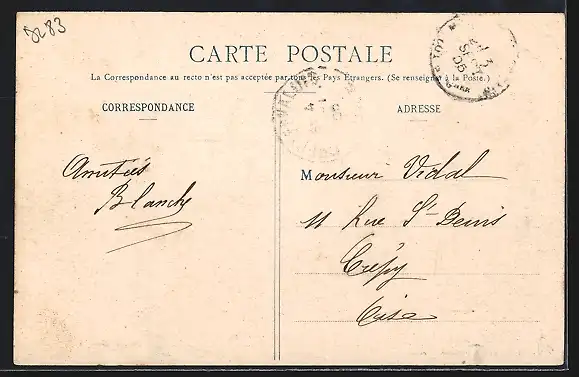 8283
CARTE POSTALE
La Correspondance au recto n'est pas acceptée par tous les Pays Étrangers. (Se renseigner à la Poste.)
CORRESPONDANCE
ADRESSE
Amitiés
Blanche
Monsieur Vidal
11 Rue St Denis
Crépy
Oise